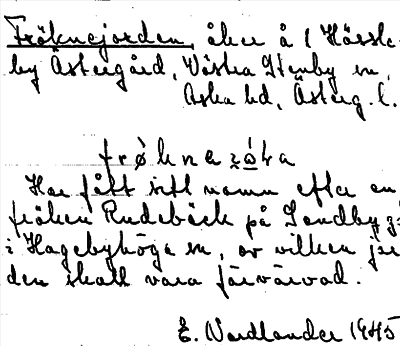 Fröknejorden, åker å 1 Hässle-
by Östergård, Västra Stenby sn,
Aska hd, Österg. l.
Har fått sitt namn efter en
fröken Rudebäck på Sandbygd
i Hagebyhöga sn, av vilken jor
den skall vara förvärvad.
E. Nordlander 1945